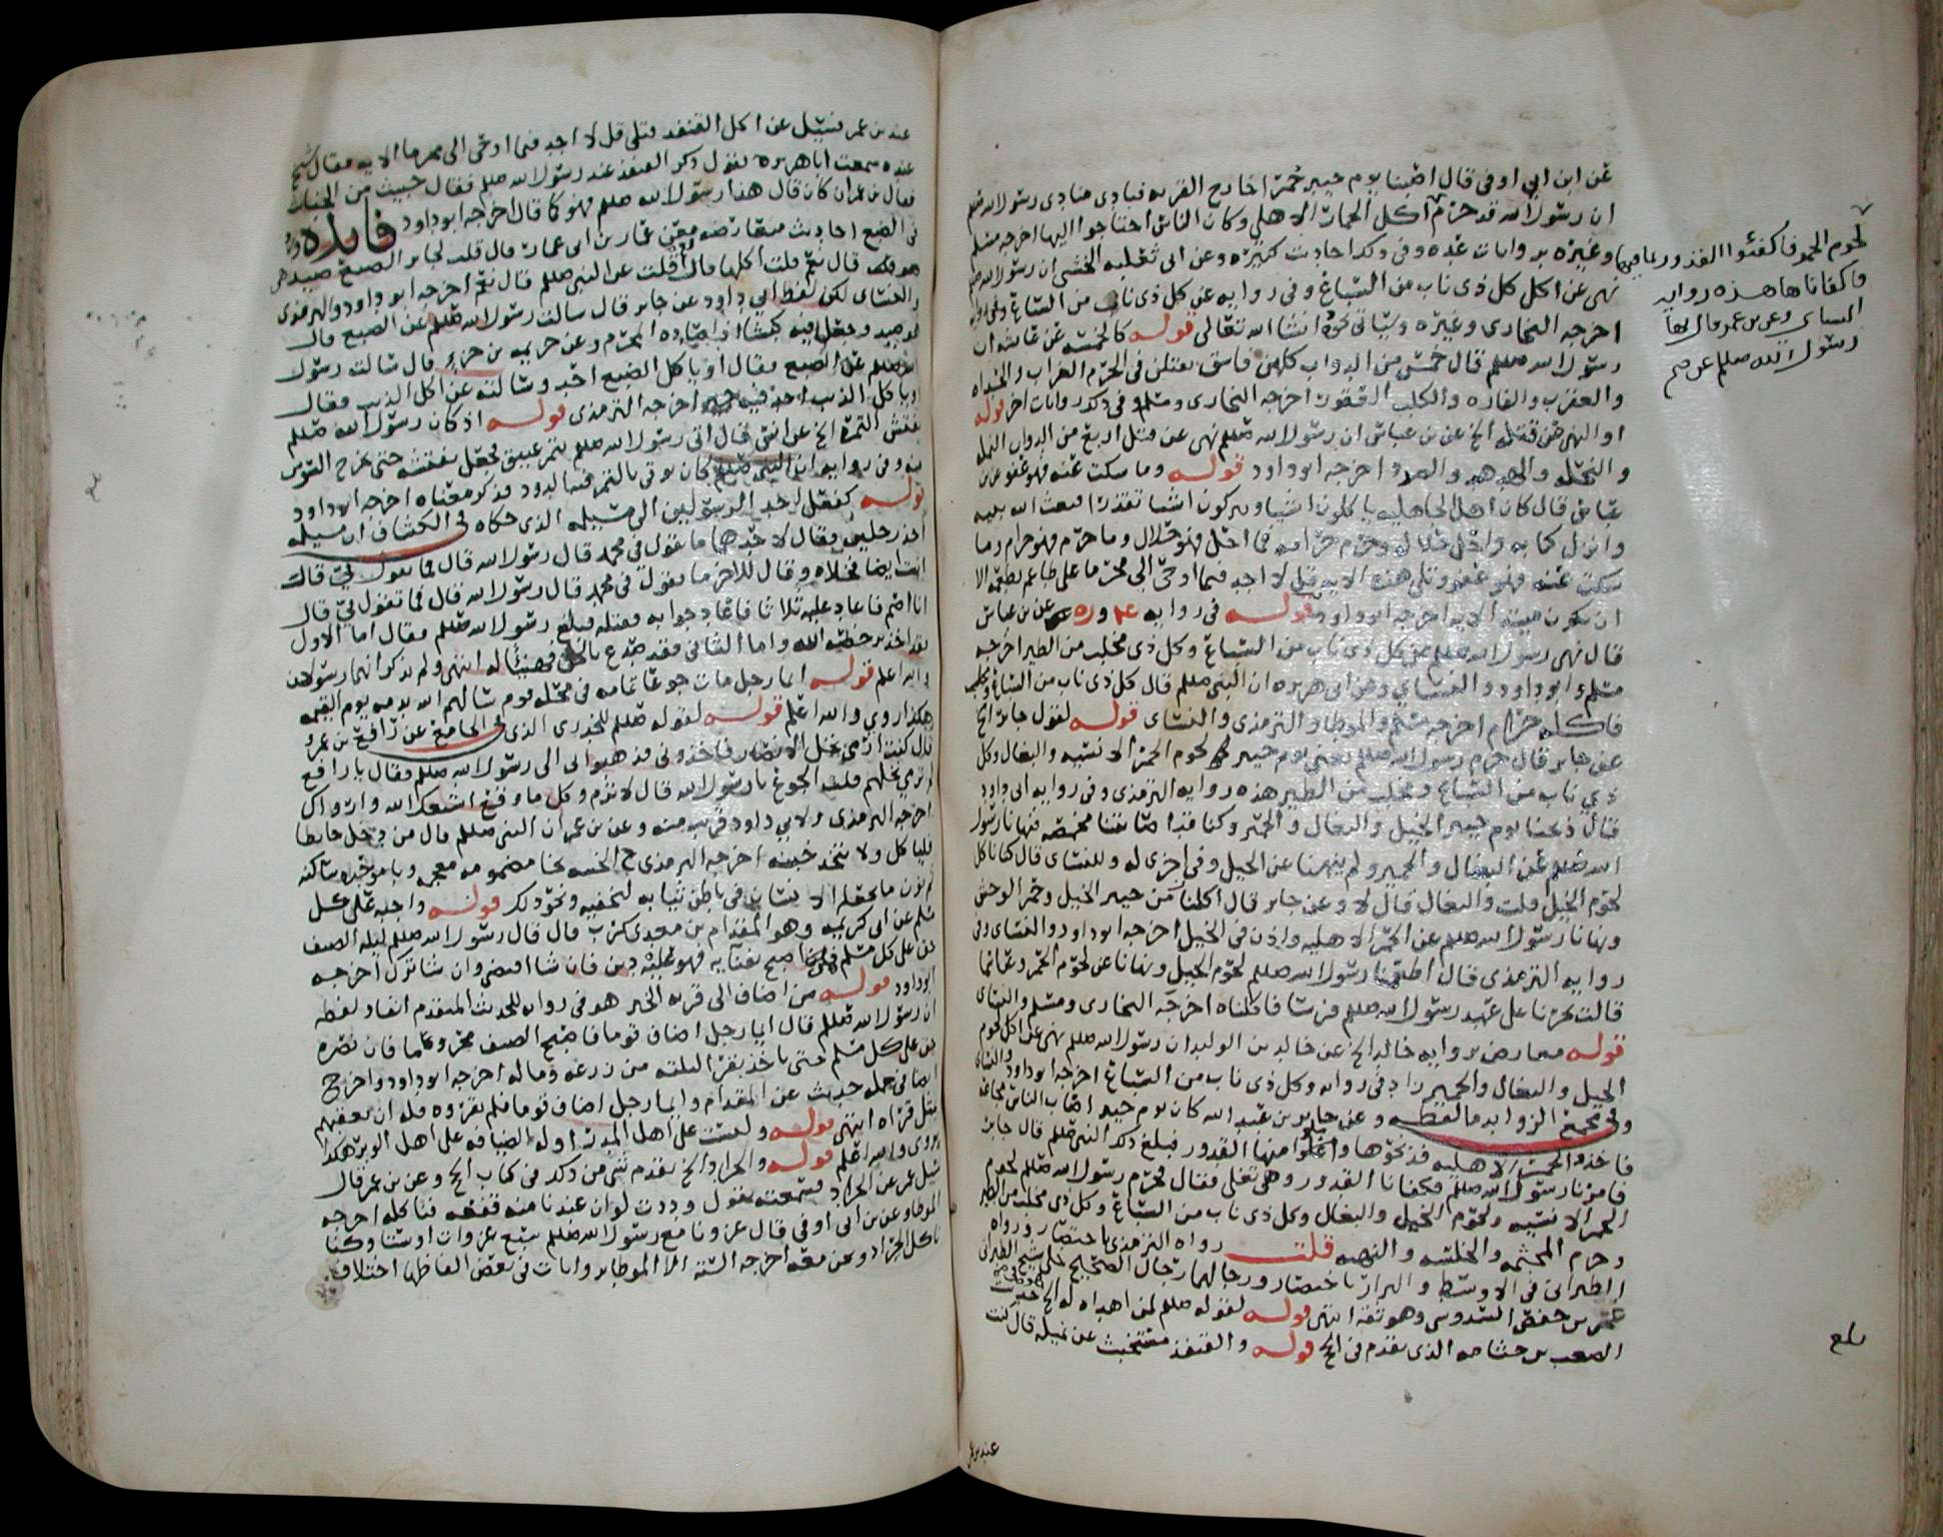 عن ابن ابي اوفى قال اصبنا يوم خيبر حمرا خارج القريه فنادى منادى رسول الله صلعم
ان رسول الله قد حرم اكل الحمار الاهلي وكان الناس احتاجوا اليها اخرجه مسلم
وغيره بروايات عده وفي ذلك احاديث كثيره وعن ابي ثعلبه الخشني ان رسول الله صلعم
نهى عن اكل كل ذي ناب من السباع وفي روايه عن كل ذي ناب من السباع
اخرجه البخاري وغيره وسياتي نحوه انشا الله تعالى قوله كالخمسه عن عائشه ان
رسول الله صلعم قال خمس من الدواب كلهن فاسق يقتلن في الحرم الغراب والحداه
والعقرب والفاره والكلب العقور اخرجه البخاري ومسلم وفي ذلك روايات اخر قوله
او النهي عن قتله الخ عن بن عباس ان رسول الله صلعم نهى عن قتل اربع من الدواب النمله
والنحله والهدهد والصرد اخرجه ابو داود قوله وما سكت عنه فهو عفو عن بن
عباس قال كان اهل الجاهليه ياكلون اشيا ويتركون اشيا تقذرا فبعث الله نبيه
وانزل كتابه واحل حلاله وحرم حرامه فما احل فهو حلال وما حرم فهو حرام وما
سكت عنه فهو عفو وتلى هذه الايه قل لا اجد فيما اوحي الي محرما على طاعم يطعمه الا
ان يكون ميته الايه اخرجه ابو داود قوله في روايه عن بن عباس
قال نهى رسول الله صلعم عن كل ذي ناب من السباع وكل ذي مخلب من الطير اخرجه
مسلم وابو داود والنسائي وعن ابي هريره ان النبي صلعم قال كل ذي ناب من السباع
فاكله حرام اخرجه مسلم والموطا والترمذي والنسائي قوله لقول جابر الخ
عن جابر قال حرم رسول الله صلعم يعني يوم خيبر لحوم الحمر الانسيه والبغال وكل
ذي ناب من السباع ومخلب من الطير هذه روايه الترمذي وفي روايه ابي داود
قال ذبحنا يوم خيبر الخيل والبغال والحمير وكنا قد اصابتنا مخمصه فنهانا رسول
الله صلعم عن البغال والحمير ولم ينهنا عن الخيل وفي اخرى له وللنسائي قال كنا ناكل
لحوم الخيل قلت والبغال قال لا وعن جابر قال اكلنا زمن خيبر الخيل وحمر الوحش
ونهانا رسول الله صلعم عن الحمر الاهليه واذن في الخيل اخرجه ابو داود والنسائي وفي
روايه الترمذي قال اطعمنا رسول الله صلعم لحوم الخيل ونهانا عن لحوم الحمر وعن اسما
قالت نحرنا على عهد رسول الله صلعم فرسا فاكلناه اخرجه البخاري ومسلم والنسائي
قوله معارض بروايه خالد الخ عن خالد بن الوليد ان رسول الله صلعم نهى عن اكل لحوم
الخيل والبغال والحمير زاد في روايه وكل ذي ناب من السباع اخرجه ابو داود والنسائي
وفي مجمع الزوايد ما لفظه وعن جابر بن عبد الله كان يوم خيبر اصاب الناس مجاعه
فاخذوا الحمر الاهليه فذبحوها واغلوا منها القدور فبلغ ذلك النبي صلعم قال جابر
فامرنا رسول الله صلعم فكفانا القدور وهي تغلي فقال فحرم رسول الله صلعم لحوم
الحمر الانسيه ولحوم الخيل والبغال وكل ذي ناب من السباع وكل ذي مخلب من الطير
وحرم المجثمه والخلسه والنهبه قلت رواه الترمذي باختصار ورواه
الطبراني في الاوسط والبزار باختصار ورجالهما رجال الصحيح خلا شيخ الطبراني
عمر بن حفص السدوسي وهو ثقه انتهى قوله لقوله صلعم لمن اهداه له الخ حديث
الصعب بن جثامه الذي تقدم في الحج قوله والقنفذ مستخبث عن نميله قال كنت
لحوم الحمر فاكفئوا القدور بما فيها
فاكفاناها هذه روايه
النسائي وعن بن عمر قال نهى
رسول الله صلعم عن
بلغ
عند بن عمر
عند بن عمر فسئل عن اكل القنفذ فتلى قل لا اجد فيما اوحي الي محرما الايه فقال شيخ
عنده سمعت ابا هريره يقول ذكر القنفذ عند رسول الله صلعم فقال خبيث من الخبائث
فقال بن عمر ان كان قال هذا رسول الله صلعم فهو كما قال اخرجه ابو داود فايده
في الضبع احاديث متعارضه فعن عمار بن ابي عمار قال قلت لجابر الضبع صيد هي
قال نعم قلت اكلها قال نعم قلت عن النبي صلعم قال نعم اخرجه ابو داود والترمذي
والنسائي لكن لفظ ابي داود عن جابر قال سالت رسول الله صلعم عن الضبع قال
هو صيد وجعل فيه كبشا اذا صاده المحرم وعن خزيمه بن جزء قال سالت رسول
الله صلعم عن الضبع فقال او ياكل الضبع احد وسالته عن اكل الذيب فقال
او ياكل الذيب احد فيه خير اخرجه الترمذي قوله اذ كان رسول الله صلعم
يفتش التمر الخ عن انس قال اتي رسول الله صلعم بتمر عتيق فجعل يفتشه حتى يخرج السوس
منه وفي روايه ان النبي صلعم كان يوتى بالتمر فيه الدود فذكر معناه اخرجه ابو داود
قوله كفعل احد الرسولين الى مسيلمه الذي حكاه في الكشاف ان مسيلمه
اخذ رجلين فقال لاحدهما ما تقول في محمد قال رسول الله قال فما تقول في قال
انت ايضا فخلاه وقال للاخر ما تقول في محمد قال رسول الله قال فما تقول في قال
انا اصم فاعاد عليه ثلاثا فاعاد جوابه فقتله فبلغ رسول الله صلعم فقال اما الاول
فقد اخذ برخصه الله واما الثاني فقد صدع بالحق فهنيئا له انتهى ولم يذكر انهما رسولان
والله اعلم قوله ايما رجل مات جوعا في محله قوم سالهم الله بدمه يوم القيمه
هكذا روي والله اعلم قوله لقوله صلعم للخدري الذي في الجامع عن رافع بن عمرو
قال كنت ارمي نخل الانصار فاخذوني فذهبوا بي الى رسول الله صلعم فقال يا رافع
لم ترمي نخلهم قلت الجوع يا رسول الله قال لا ترم وكل ما وقع اشبعك الله وارواك
اخرجه الترمذي ولابي داود قريب منه وعن بن عمر ان النبي صلعم قال من دخل حايطا
فلياكل ولا يتخذ خبنه اخرجه الترمذي الخبنه بخا مضمومه معجمه وبا موحده ساكنه
ثم نون ما يحمله الانسان في باطن ثيابه ليخفيه ونحو ذلك قوله واجبه على كل
مسلم عن ابي كريمه وهو المقدام بن معدي كرب قال قال رسول الله صلعم ليله الضيف
حق على كل مسلم فمن اصبح بفنايه فهو عليه دين فان شا اقتضى وان شا ترك اخرجه
ابو داود قوله من اضاف الى قريه الخبر هو في روايه للحديث المتقدم انفا ولفظه
ان رسول الله صلعم قال ايما رجل اضاف قوما فاصبح الضيف محروما فان نصره
حق على كل مسلم حتى ياخذ بقرى ليلته من زرعه وماله اخرجه ابو داود واخرج
ايضا في جمله حديث عن المقدام وايما رجل اضاف قوما فلم يقروه فله ان يعقبهم
بمثل قراه انتهى قوله وليست على اهل المدن اوله الضيافه على اهل الوبر هكذا
روي والله اعلم قوله والجراد الخ تقدم شي من ذلك في كتاب الحج وعن بن عمر قال
سئل عمر عن الجراد فسمعته يقول وددت لو ان عندنا منه قفعه فناكله اخرجه
الموطا وعن بن ابي اوفى قال غزونا مع رسول الله صلعم سبع غزوات او ستا وكنا
ناكل الجراد ونحن معه اخرجه السته الا الموطا بروايات في بعض الفاظها اختلاف